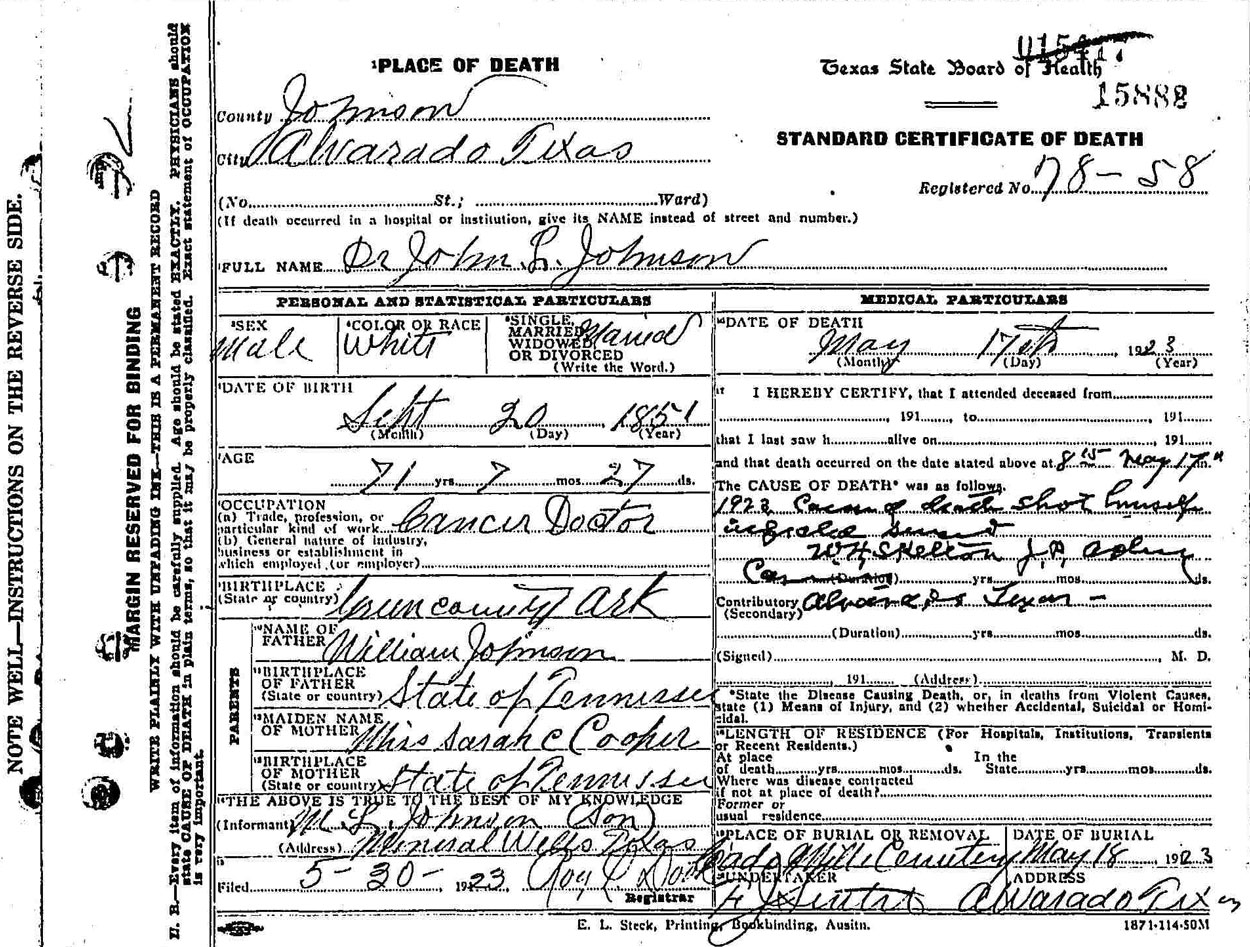 NOTE WELL—INSTRUCTIONS ON THE REVERSE SIDE.
MARGIN RESERVED FOR BINDING
WRITE PLAINLY WITH UNFADING INK—THIS IS A PERMANENT RECORD
N. B.—Every item of information should be carefully supplied. Age should be stated EXACTLY. PHYSICIANS should
state CAUSE OF DEATH in plain terms, so that it may be properly classified. Exact statement of OCCUPATION
is very important.
PLACE OF DEATH
Texas State Board of Health
15888
County Johnson
City Alvarado Texas
STANDARD CERTIFICATE OF DEATH
Registered No. 78-58
(No. St.; Ward)
(If death occurred in a hospital or institution, give its NAME instead of street and number.)
FULL NAME Dr John L. Johnson
PERSONAL AND STATISTICAL PARTICULARS
SEX
Male
COLOR OR RACE
White
SINGLE,
MARRIED Married
WIDOWED
OR DIVORCED
(Write the Word.)
DATE OF BIRTH
Sept 20 1851
(Month) (Day) (Year)
AGE
71 yrs 7 mos. 27 ds.
OCCUPATION
(a) Trade, profession, or
particular kind of work Cancer Doctor
(b) General nature of industry,
business or establishment in
which employed (or employer)
BIRTHPLACE
(State or country) Green county Ark
PARENTS
NAME OF
FATHER William Johnson
BIRTHPLACE
OF FATHER
(State or country) State of Tennessee
MAIDEN NAME
OF MOTHER Miss Sarah C Cooper
BIRTHPLACE
OF MOTHER
(State or country) State of Tennessee
THE ABOVE IS TRUE TO THE BEST OF MY KNOWLEDGE
(Informant) M L Johnson (Son)
(Address) Mineral Wells Texas
Filed 5-30- 1923 Roy C
Registrar
MEDICAL PARTICULARS
DATE OF DEATH
May 17th, 1923
(Month) (Day) (Year)
I HEREBY CERTIFY, that I attended deceased from
, 191 , to , 191
that I last saw h alive on , 191
and that death occurred on the date stated above at 8 15 May 17 m.
The CAUSE OF DEATH* was as follows.
1923 Cause of death shot himself
W H Skelton J.P.
(Duration) yrs. mos. ds.
Contributory Alvarado Texas -
(Secondary)
(Duration) yrs. mos. ds.
(Signed) , M. D.
, 191 (Address)
*State the Disease Causing Death, or, in deaths from Violent Causes,
state (1) Means of Injury, and (2) whether Accidental, Suicidal or Homi-
cidal.
LENGTH OF RESIDENCE (For Hospitals, Institutions, Transients
or Recent Residents.)
At place In the
of death yrs. mos. ds. State yrs. mos. ds.
Where was disease contracted
if not at place of death?
Former or
usual residence
PLACE OF BURIAL OR REMOVAL
Mills Cemetery
DATE OF BURIAL
May 18 1923
UNDERTAKER
ADDRESS
Alvarado Tex
E. L. Steck, Printing, Bookbinding, Austin.
1871-114-50M